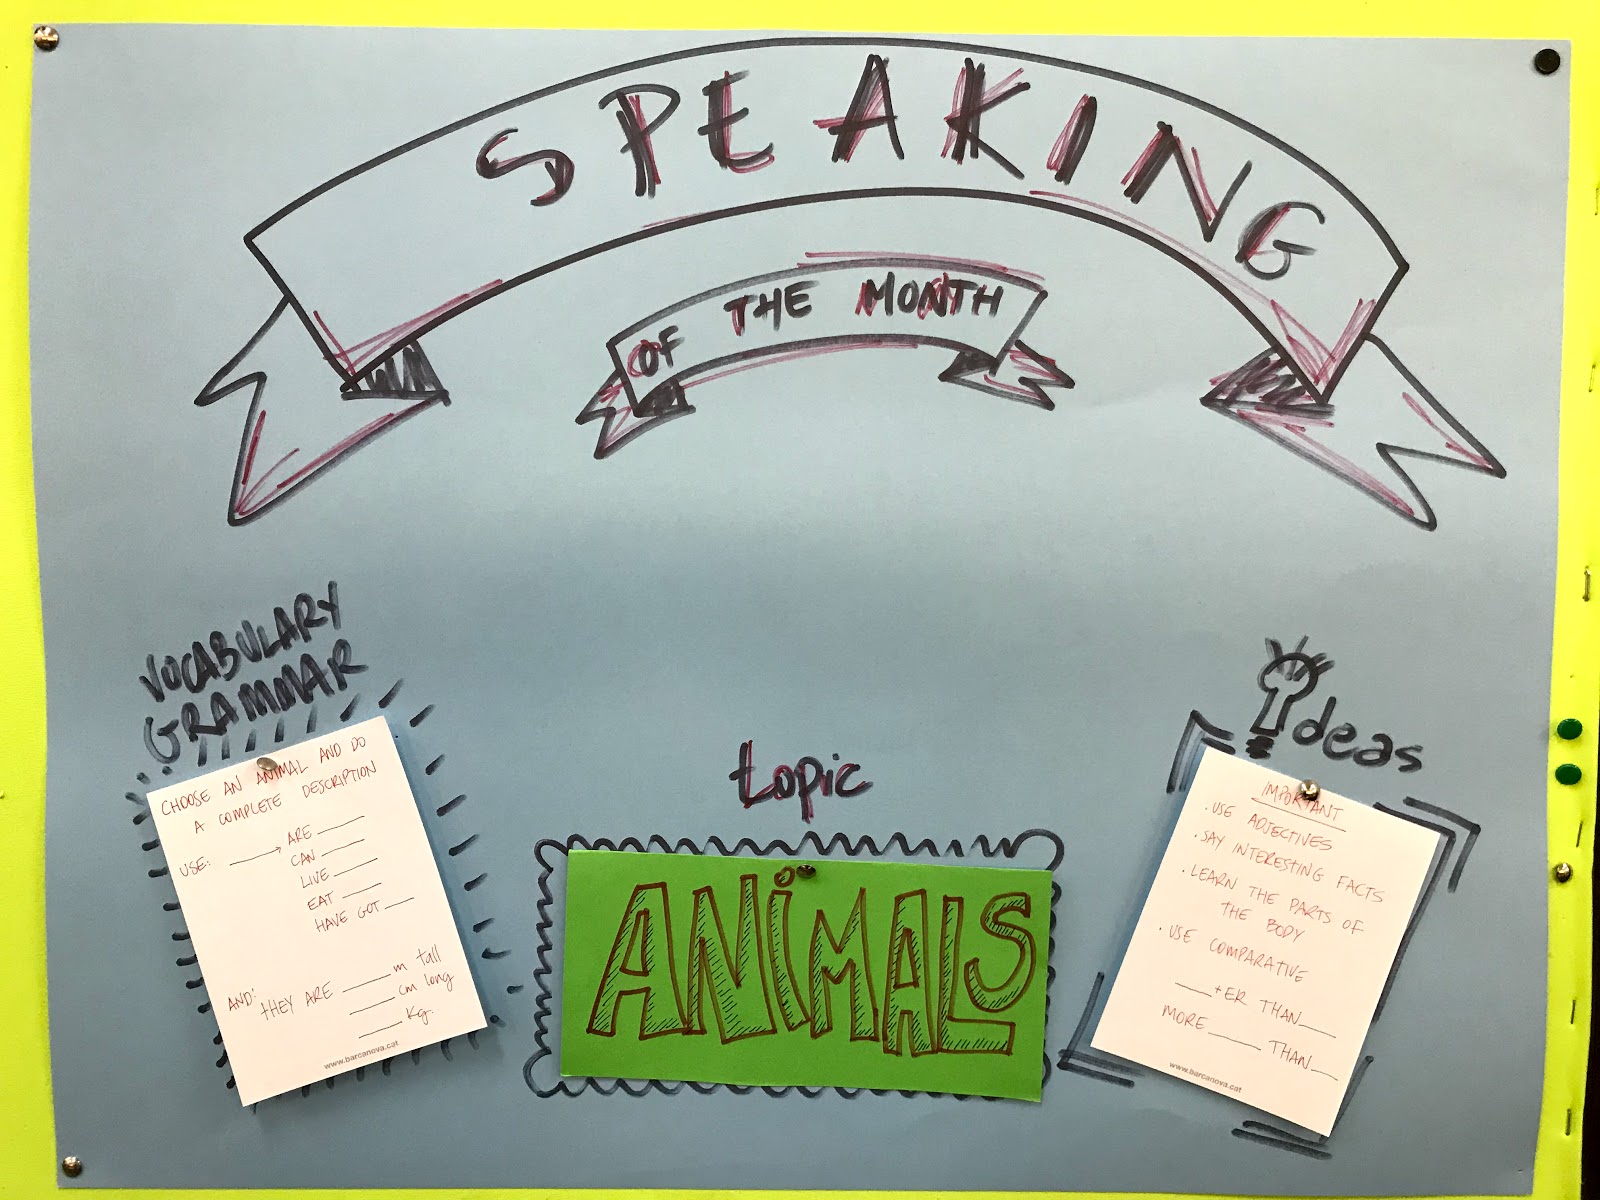 SPEAKING
OF THE MONTH
VOCABULARY
GRAMMAR
CHOOSE AN ANIMAL AND DO
A COMPLETE DESCRIPTION
USE: ARE ____
CAN ____
LIVE ____
EAT ____
HAVE GOT ____
AND: THEY ARE ____ m tall
____ cm long
____ Kg.
www.barcanova.cat
topic
ANiMALS
ideas
IMPORTANT
. USE ADJECTIVES
. SAY INTERESTING FACTS
. LEARN THE PARTS OF
THE BODY
. USE COMPARATIVE
____+ER THAN____
MORE ____ THAN ____
www.barcanova.cat